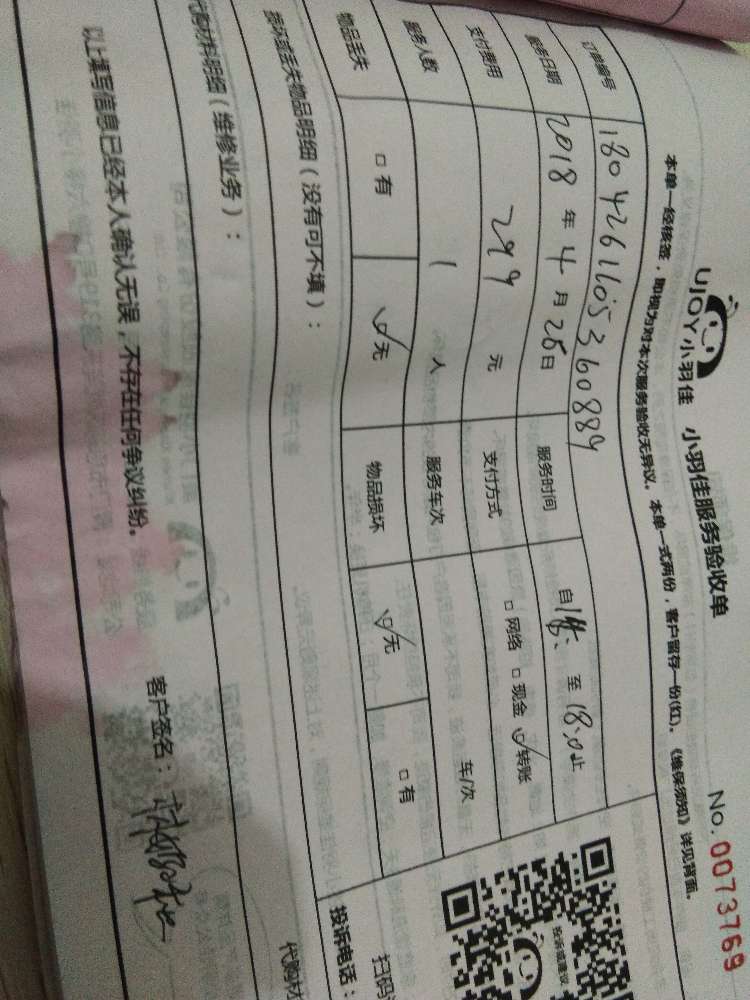 UJOY小羽佳 小羽佳服务验收单
No. 0073769
本单一经核签，即视为对本次服务验收无异议。本单一式两份，客户留存一份(红)。《维保须知》详见背面。
订单编号 180426110536 0889
服务日期 2018 年 4 月 26 日 服务时间 自 至 18:0 止
支付费用 299 元 支付方式 □ 网络 □ 现金 ☑ 转账
服务人数 1 人 服务车次 车/次
物品丢失 □ 有 ☑ 无 物品损坏 ☑ 无 □ 有
损坏或丢失物品明细（没有可不填）：
代购材料明细（维修业务）：
以上填写信息已经本人确认无误，不存在任何争议纠纷。
客户签名：
投诉或建议
扫码
投诉电话：
代购材